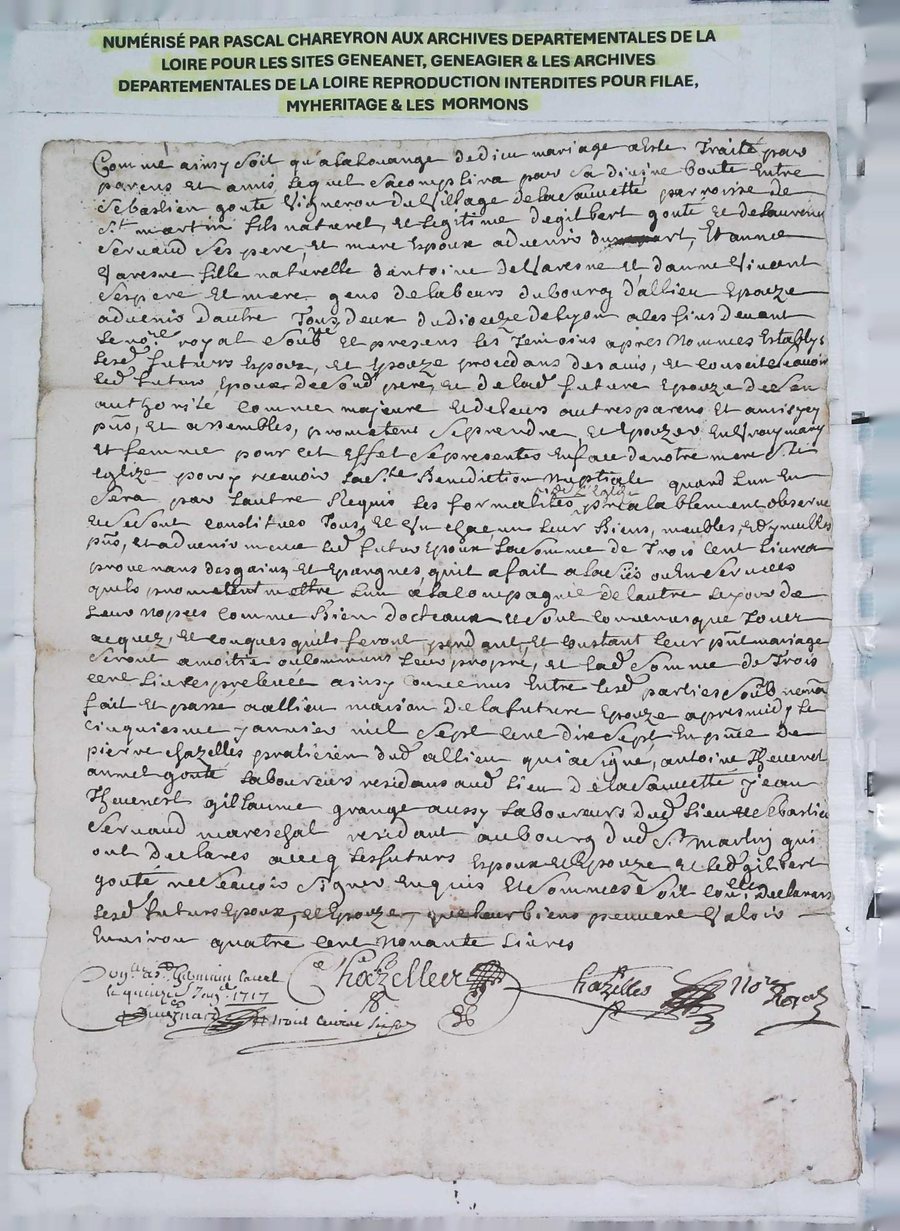 NUMÉRISÉ PAR PASCAL CHAREYRON AUX ARCHIVES DEPARTEMENTALES DE LA
LOIRE POUR LES SITES GENEANET, GENEAGIER & LES ARCHIVES
DEPARTEMENTALES DE LA LOIRE REPRODUCTION INTERDITES POUR FILAE,
MYHERITAGE & LES MORMONS
Comme ainsy soit qu'alalouange dedieu mariage aeste Traité par
parens et amis lequel sacomplira par sa divine bonté Entre
sebastien gouté Vigneron du Village de lasauvetté parroisse de
St martin fils naturel et legitime degilbert gouté et delaurence
servaud ses pere et mere Epoux advenir Et anne
Varesne fille naturelle dantoine deVaresne et danne Vincent
sespere et mere gens delabeurs dubourg d'allieu Epouze
advenir dautre Tous deux dudiocieze delyon alesfins devant
le nore royal soubne et presens les Temoins après nommés Establys
lesd futurs Epoux, et Epouze procedans desavis, et conseils scavoir
led futur Epoux de sond pere, et de lad future Epouze de son
authorité comme majeure et deleurs autres parens et amis icy
pns, et assembles, prometent seprendre, et Epouzer en Vray mary
et femme pour cet Effet sepresenter Enface denotre mere ste
Eglize pour y recevoir la ste Benediction Nuptiale quand lun En
sera par lautre Requis les formalités prealablement observé
En se sont constitués Tous, et Un chacun leur Biens, meubles, et ymeubles
pns, et advenir meme led futur Epoux lasomme de Trois cent livres
provenans desgains, et Epargnes, quil afait en services
quils prometent mettre lun alacompagnie delautre lejour de
leur nopces comme Bien Tous
acquez, et conques quils feront pendant, et constant leur pnt mariage
seront amoitie oucommuns leur propre, et lad somme de Trois
cent livres prelevée ainsy convenus Entre lesd parties
fait et passé aallieu maison delafuture Epouze apresmidy le
cinquiesme janvier mil sept cent dix sept En pnce de
pierre chazelles praticien dud allieu quiasigné, antoine Thevenet
annet gouté laboureurs residans aud lieu de lasauvette jean
Thevenet gillaume grange aussy laboureurs dud lieu sebastien
servaud mareschal residant aubourg dud St martin qui
ont declares avecq lesfuturs Epoux et Epouze et led gilbert
gouté nescavoir signer Enquis et sommes declarans
lesd futurs Epoux, et Epouze, queleur biens peuvent Valoir
Environ quatre cent nonante livres
le quinze janv 1717
Chazelles
Chazelles Nore Royal